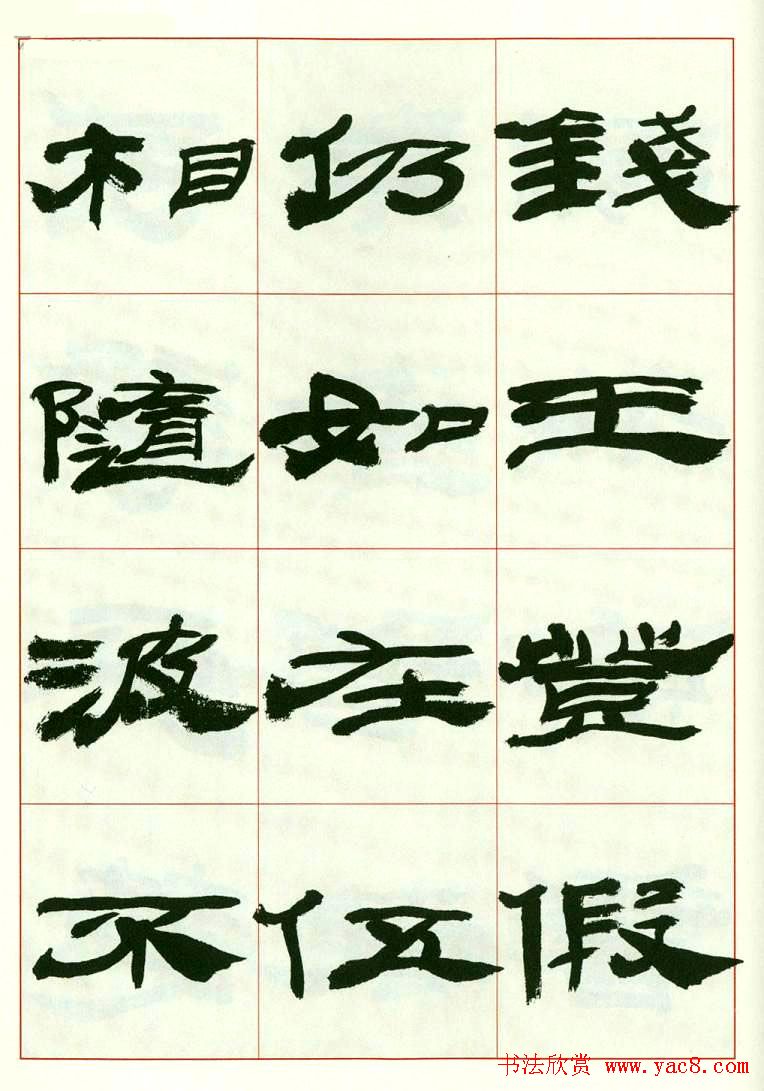 錢王登假
仍如在伍
相隨波不
书法欣赏 www.yac8.com